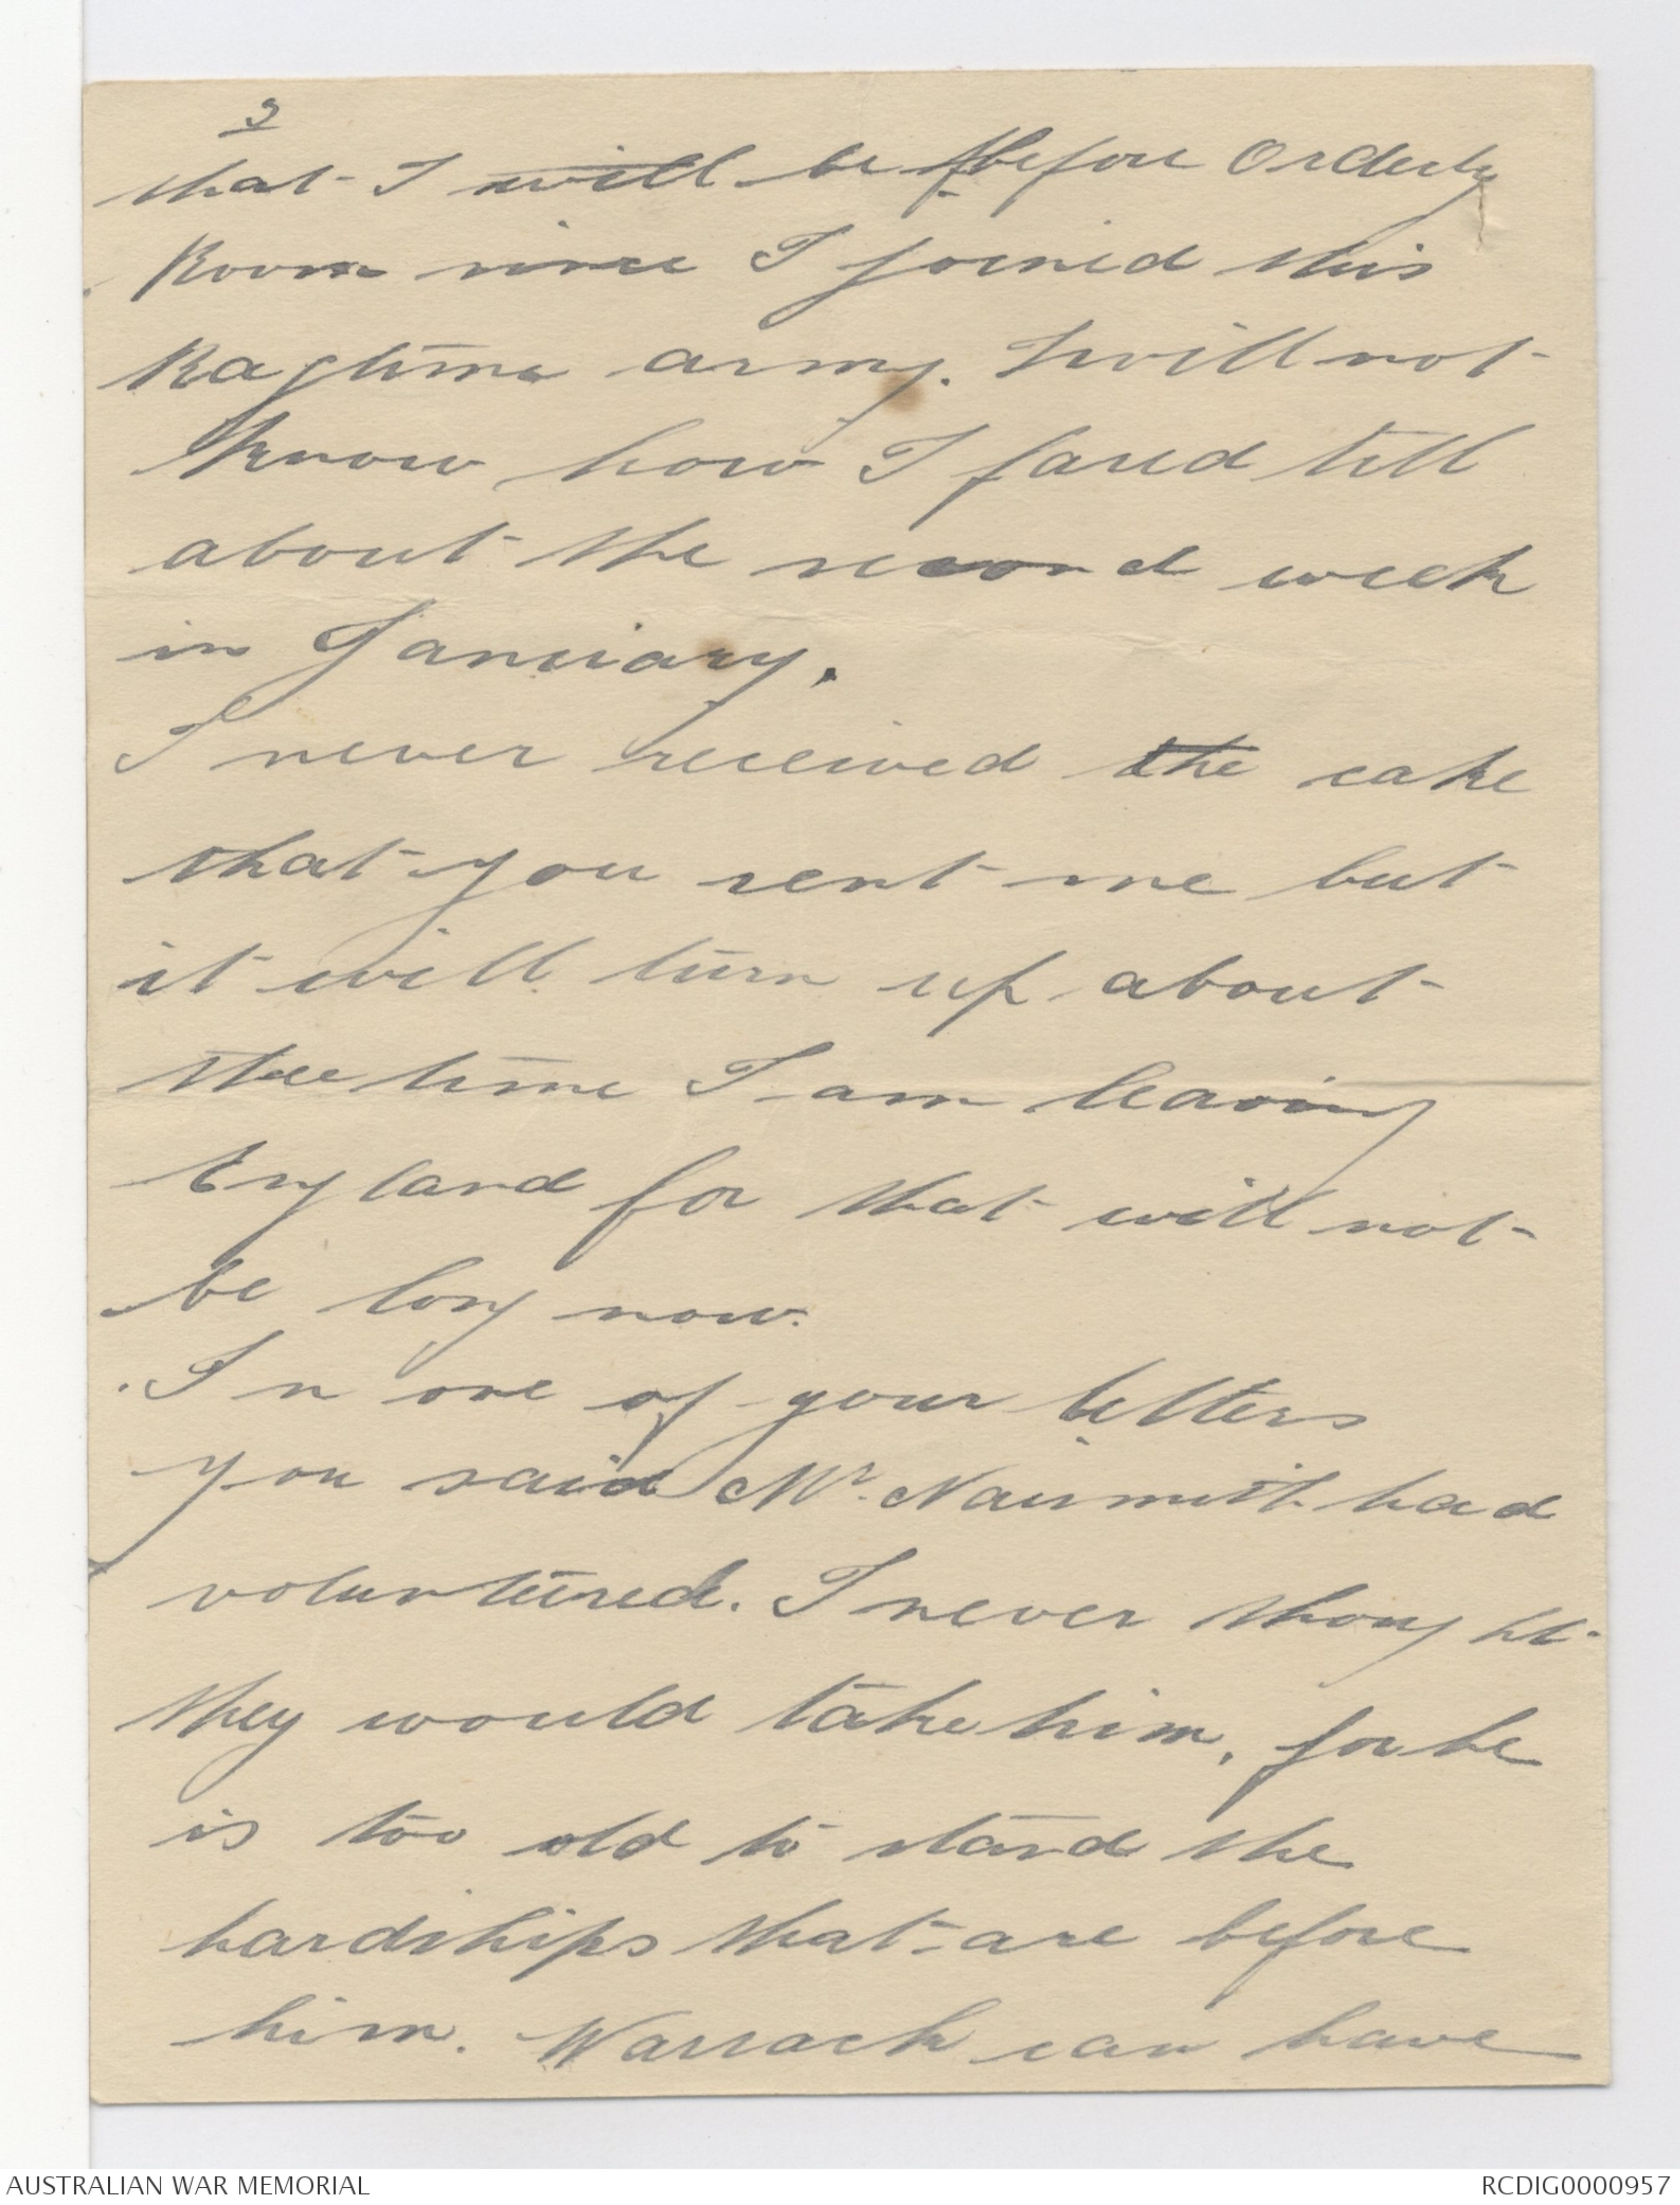 3
that I will be before Orderly
Room since I joined this
Ragtime army. I will not
know how I fared till
about the second week
in January.
I never received the cake
that you sent me but
it will turn up about
the time I am leaving
England for that will not
be long now.
In one of your letters
you said Mr. Naismith had
voluntered. I never thought
they would take him, for he
is too old to stand the
hardships that are before
him. Warrach can have
AUSTRALIAN WAR MEMORIAL
RCDIG0000957